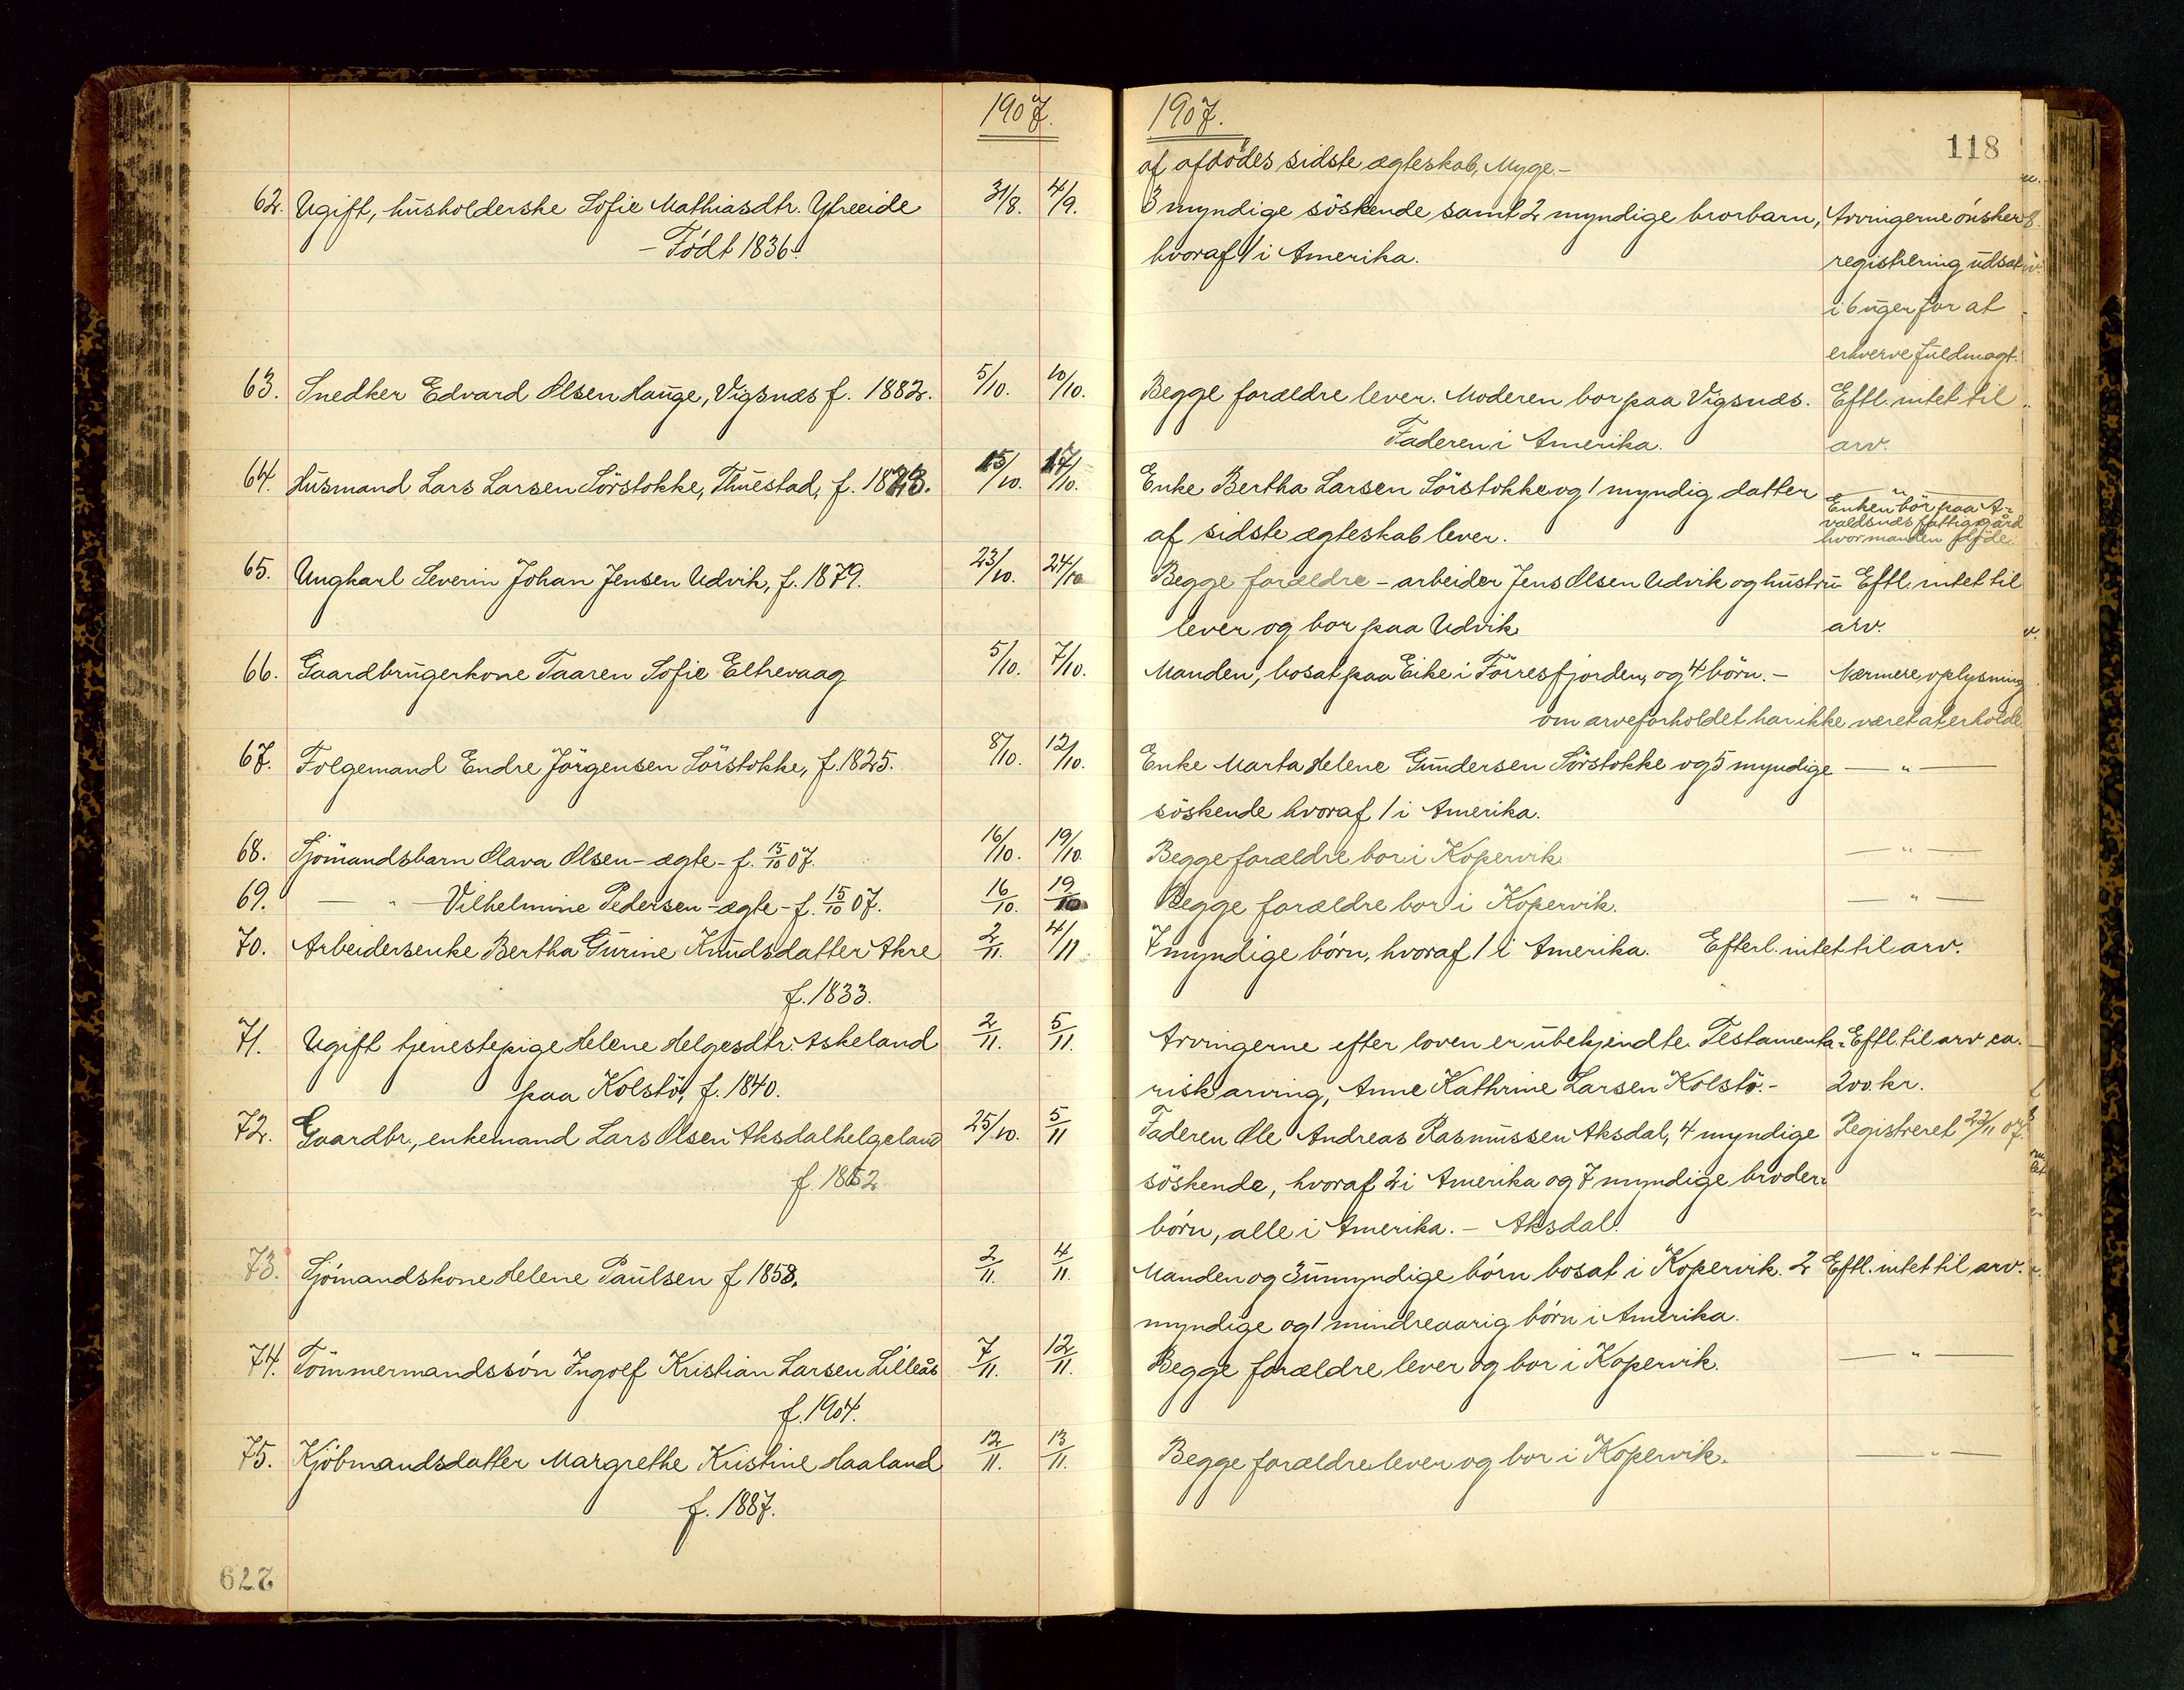 1907.
62. Ugift, husholderske Sofie Mathiasdtr. Ytreeide 31/8. 4/9.
- Födt 1836.
63. Snedker Edvard Olsen Hauge, Vigsnæs f. 1882. 5/10. 10/10.
64. Husmand Lars Larsen Sörstokke, Thuestad, f. 1823. 15/10. 17/10.
65. Ungkarl Severin Johan Jensen Udvik, f. 1879. 23/10. 24/10
66. Gaardbrugerkone Taaren Sofie Eltrevaag 5/10. 7/10.
67. Folgemand Endre Jörgensen Sörstokke, f. 1825. 8/10. 12/10.
68. Sjömandsbarn Olava Olsen - ægte - f. 15/10 07. 16/10. 19/10.
69. — " — Vilhelmine Pedersen - ægte - f. 15/10 07. 16/10. 19/10
70. Arbeidersenke Bertha Gurine Knudsdatter Akre 2/11. 4/11
f. 1833.
71. Ugift tjenestepige Helene Helgesdtr. Askeland 2/11. 5/11.
paa Kolstö, f. 1840.
72. Gaardbr., enkemand Lars Olsen Aksdalhelgeland 25/10. 5/11
f. 1852
73. Sjömandskone Helene Paulsen f 1858. 2/11. 4/11.
74. Tömmermandssön Ingolf Kristian Larsen Lilleås 7/11. 12/11.
f. 1904.
75. Kjöbmandsdatter Margrethe Kristine Haaland 12/11. 13/11.
f. 1887.
279
1907.
118
af afdödes sidste ægteskab, Myge. -
3 myndige söskende samt 2 myndige brorbarn, Arvingerne önsker
hvoraf 1 i Amerika. registrering udsat
i 6 uger for at
erhverve fuldmagt.
Begge forældre lever. Moderen bor paa Vigsnæs. Eftl. intet til
Faderen i Amerika. arv.
Enke Bertha Larsen Sörstokke og 1 myndig datter — " —
Enken bor paa A-
valdsnæs fattiggård
af sidste ægteskab lever. hvor manden döde.
Begge forældre - arbeider Jens Olsen Udvik og hustru Eftl. intet til
lever og bor paa Udvik arv.
Manden, bosat paa Eike i Förresfjorden, og 4 börn. - Nærmere oplysning
om arveforholdet har ikke været at erholde
Enke Marta Helene Gundersen Sörstokke og 5 myndige — " —
söskende hvoraf 1 i Amerika.
Begge forældre bor i Kopervik — " —
Begge forældre bor i Kopervik. — " —
7 myndige börn, hvoraf 1 i Amerika. Efterl. intet til arv.
Arvingerne efter loven er ubekjendte. Testamenta- Eftl. til arv ca.
risk arving, Anne Kathrine Larsen Kolstö. - 200 kr.
Faderen Ole Andreas Rasmussen Aksdal, 4 myndige Registreret 22/11 07.
söskende, hvoraf 2 i Amerika og 7 myndige broder-
börn, alle i Amerika. - Aksdal.
Manden og 3 umyndige börn bosat i Kopervik. 2 Eftl. intet til arv.
myndige og 1 mindreaarig börn i Amerika.
Begge forældre lever og bor i Kopervik. — " —
Begge forældre lever og bor i Kopervik. — " —